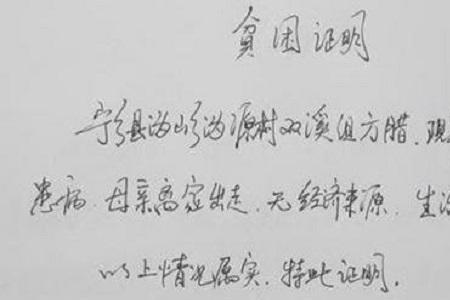 贫困证明
宁乡县沩山乡沩源村双溪组方腊，现
患病，母亲离家出走，无经济来源，生活
以上情况属实，特此证明。